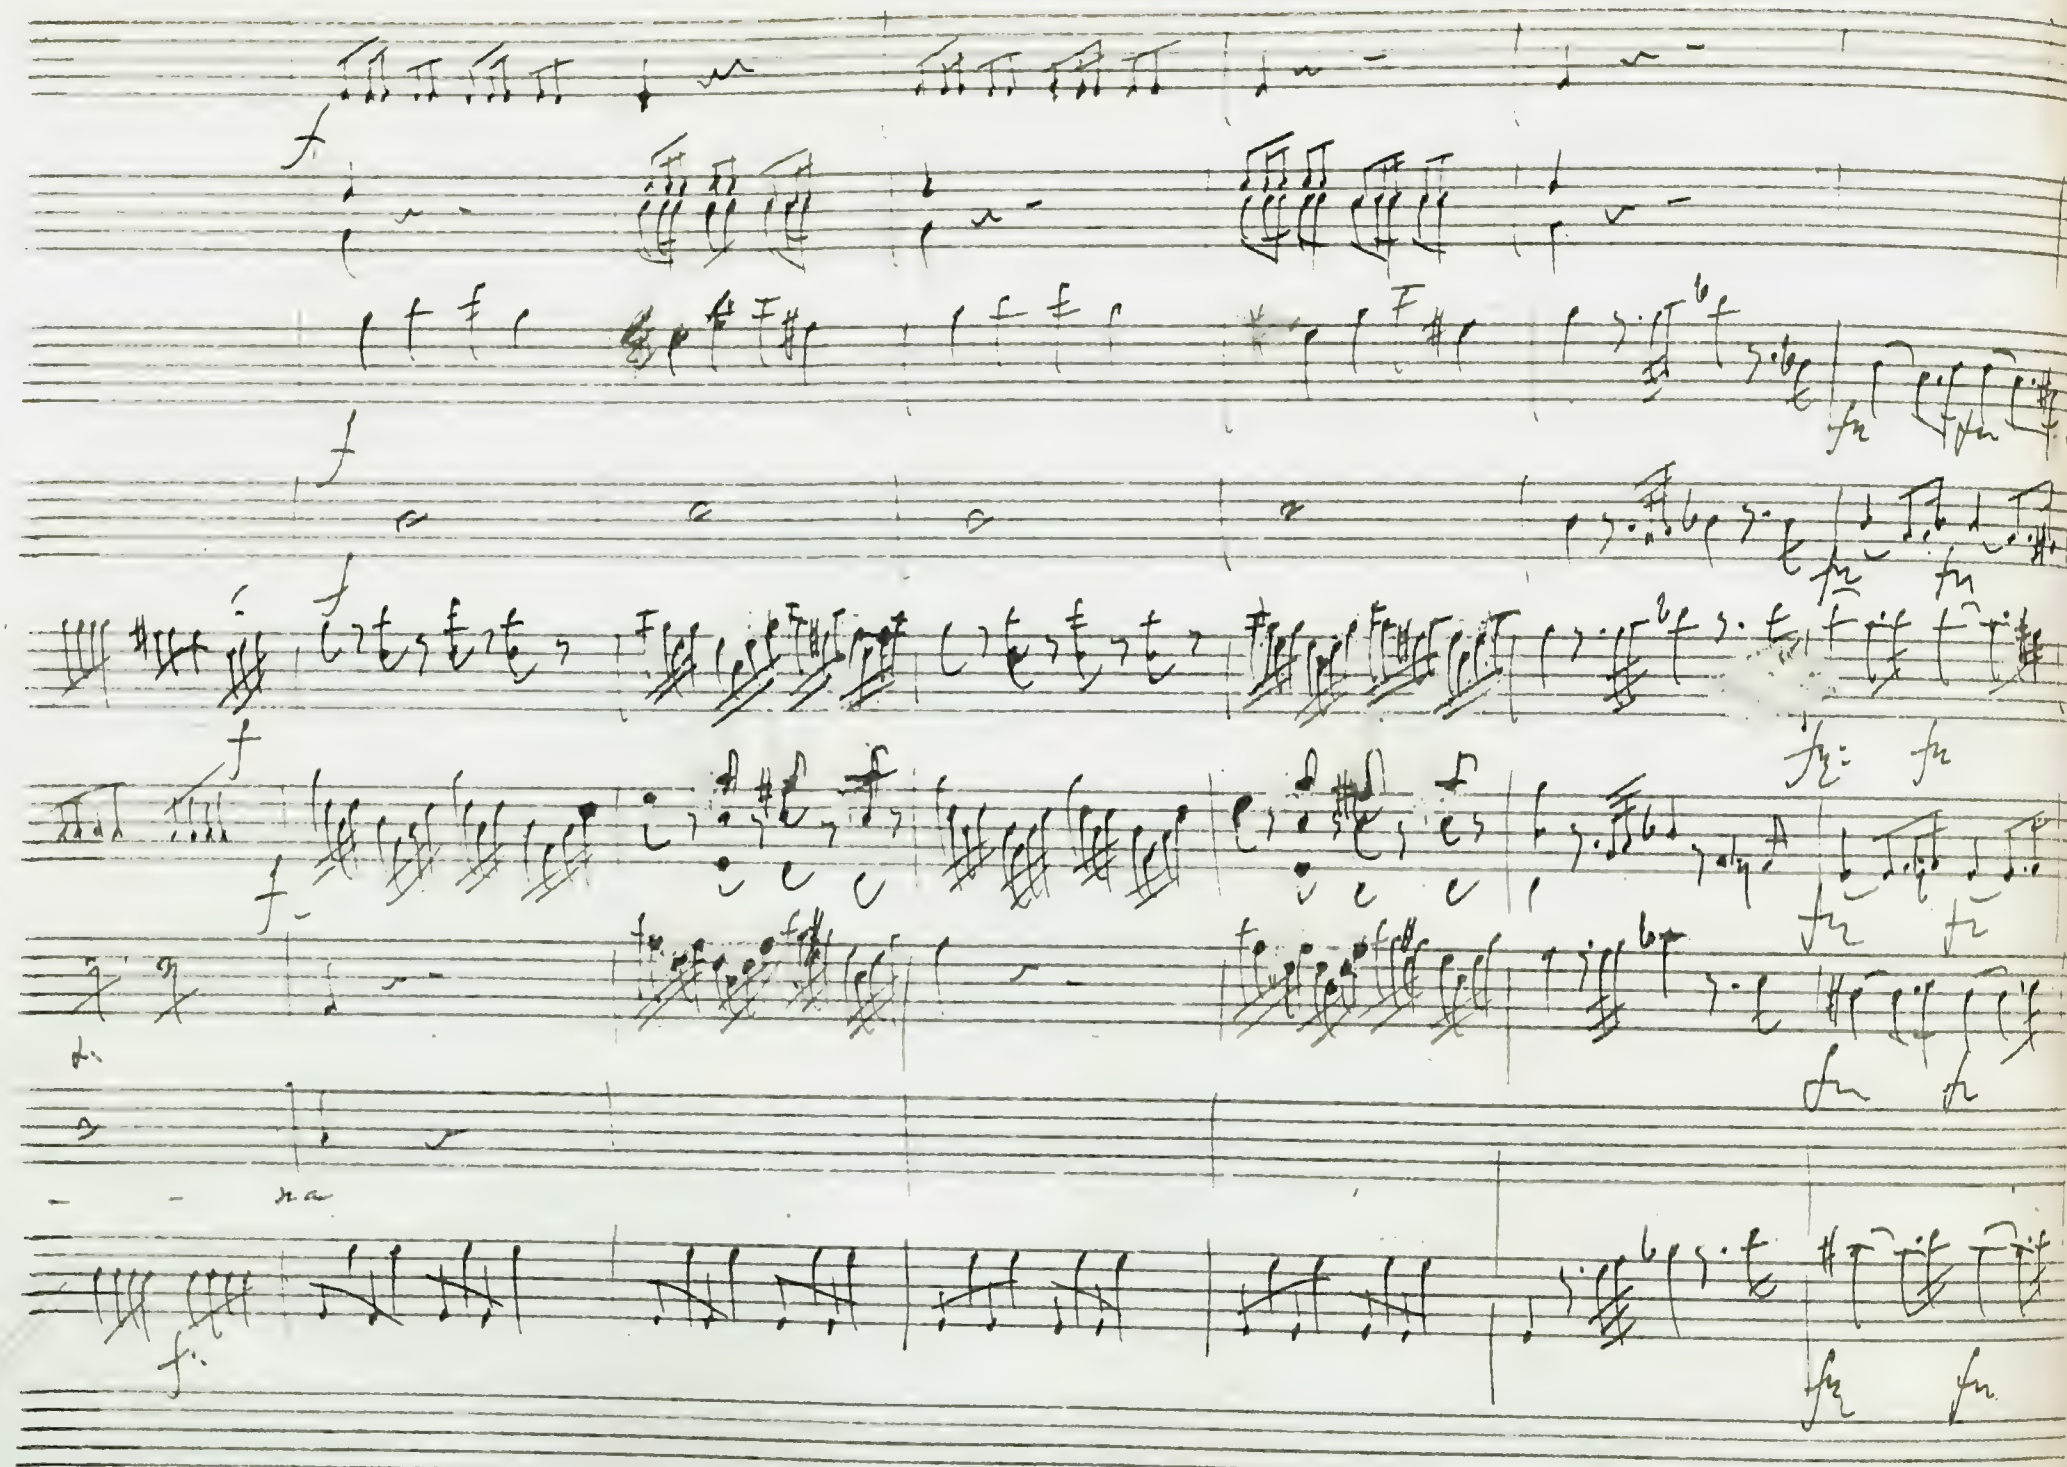 f.
f
f
f
fz fz
fz fz
f
fz: fz
f
fz fz
fz fz
- - na
f.
fz fz